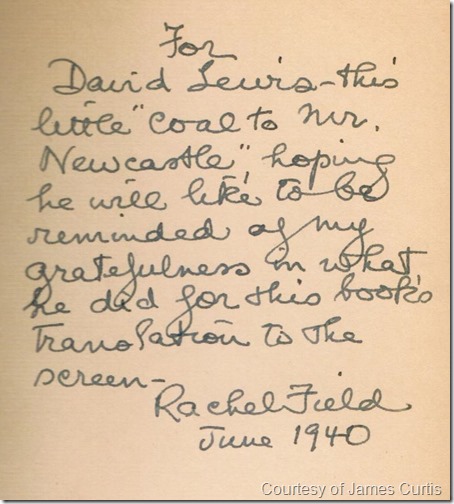 For
David Lewis - this
little "Coal to Mr.
Newcastle", hoping
he will like to be
reminded of my
gratefulness in what
he did for this book's
translation to the
screen -
Rachel Field
June 1940
Courtesy of James Curtis